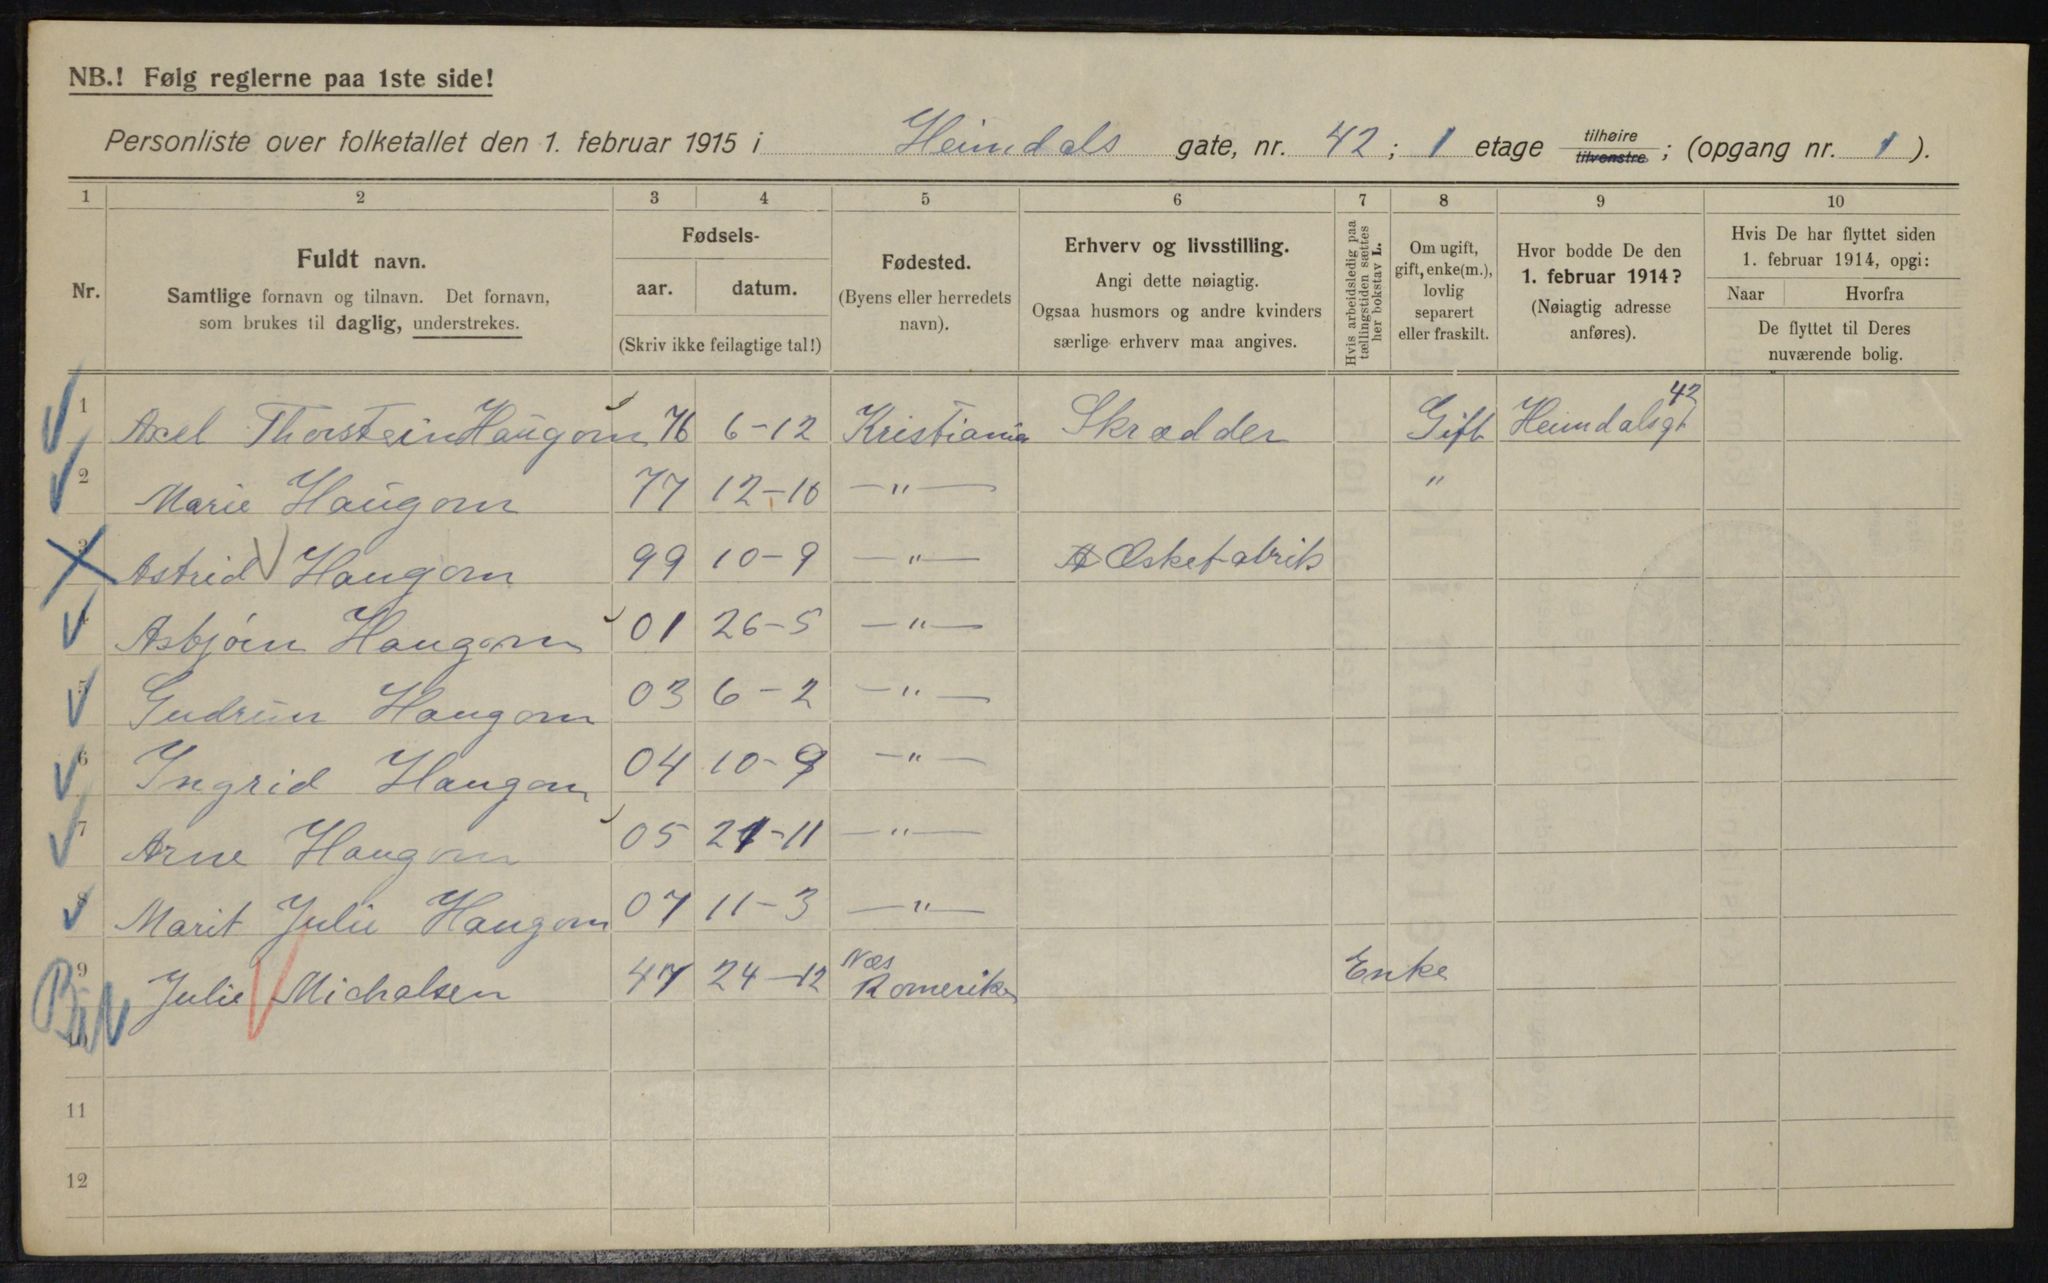 NB.! Følg reglerne paa 1ste side!
Personliste over folketallet den 1. februar 1915 i Heimdals gate, nr. 42 ; 1 etage tilhøire tilvenstre ; (opgang nr. 1 ).
1 2 3 4 5 6 7 8 9 10
Nr.
Fuldt navn.
Samtlige fornavn og tilnavn. Det fornavn,
som brukes til daglig, understrekes.
Fødsels-
aar. datum.
(Skriv ikke feilagtige tal!)
Fødested.
(Byens eller herredets
navn).
Erhverv og livsstilling.
Angi dette nøiagtig.
Ogsaa husmors og andre kvinders
særlige erhverv maa angives.
Hvis arbeidsledig paa
tællingstiden sættes
her bokstav L.
Om ugift,
gift, enke(m.),
lovlig
separert
eller fraskilt.
Hvor bodde De den
1. februar 1914?
(Nøiagtig adresse
anføres).
Hvis De har flyttet siden
1. februar 1914, opgi:
Naar Hvorfra
De flyttet til Deres
nuværende bolig.
1 Axel Thorstein Haugom 76 6-12 Kristiania Skrædder Gift Heimdalsgt 42
2 Marie Haugom 77 12-10 —"— "
3 Astrid Haugom 99 10-9 —"— Æskefabrik
4 Asbjørn Haugom 01 26-5 —"—
5 Gudrun Haugom 03 6-2 —"—
6 Ingrid Haugom 04 10-9 —"—
7 Arne Haugom 05 21-11 —"—
8 Marit Julie Haugom 07 11-3 —"—
9 Julie Michalsen 47 24-12 Næs Romerike Enke
10
11
12